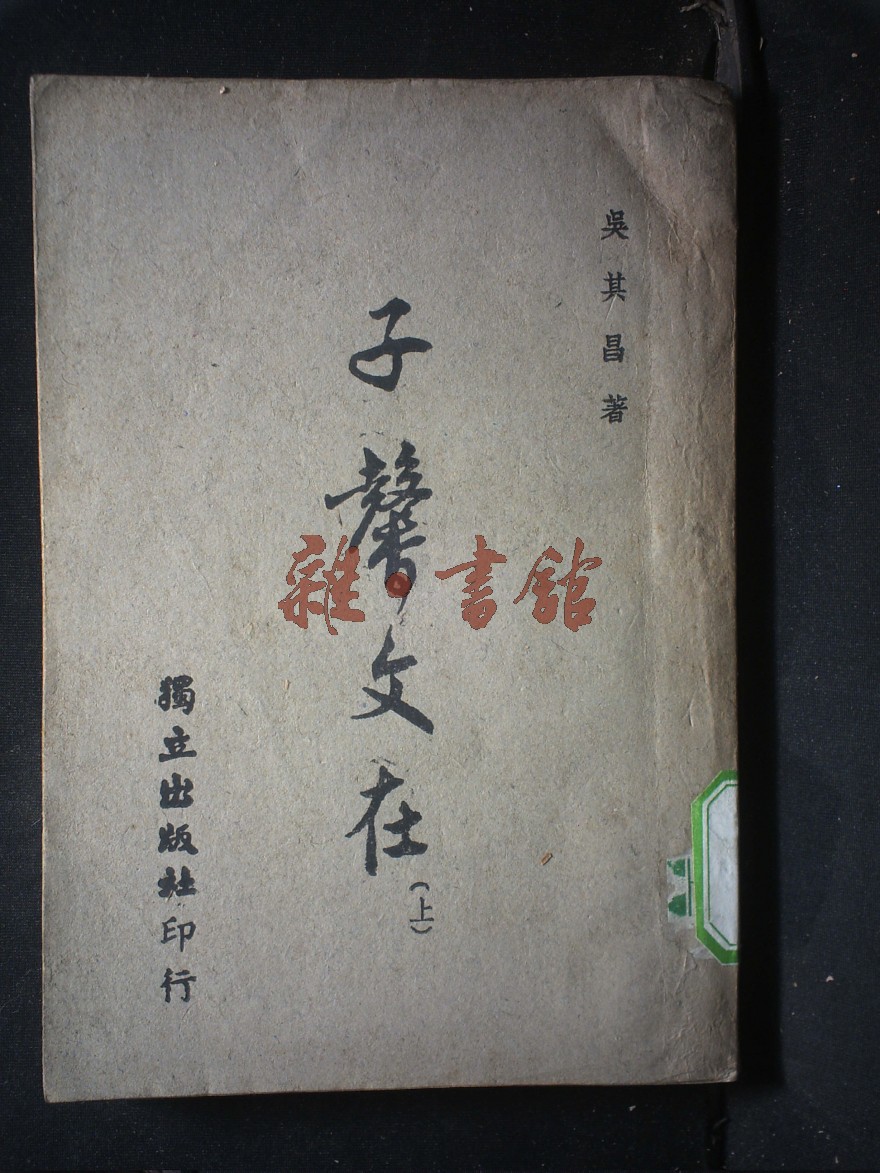 吳其昌著
子馨文在(上)
獨立出版社印行
雜·書館